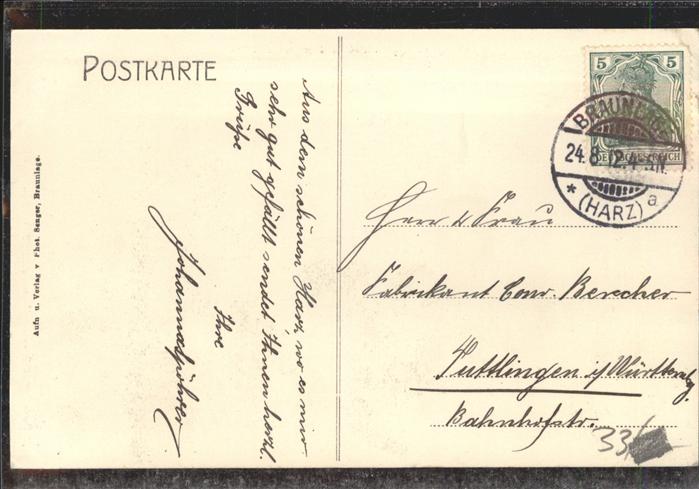 POSTKARTE
Aus dem schönen Harz, wo es mir
sehr gut gefällt sendet Ihnen herzl.
Grüße
Ihre
Aufn u. Verlag v Phot. Senger, Braunlage.
5 5
DEUTSCHES REICH
BRAUNLAGE
24.8.12.4-5N.
* (HARZ) a
Herr u Frau
Fabrikant Conr. Berecher
Tuttlingen i/Württembg.
Bahnhofstr.
33/